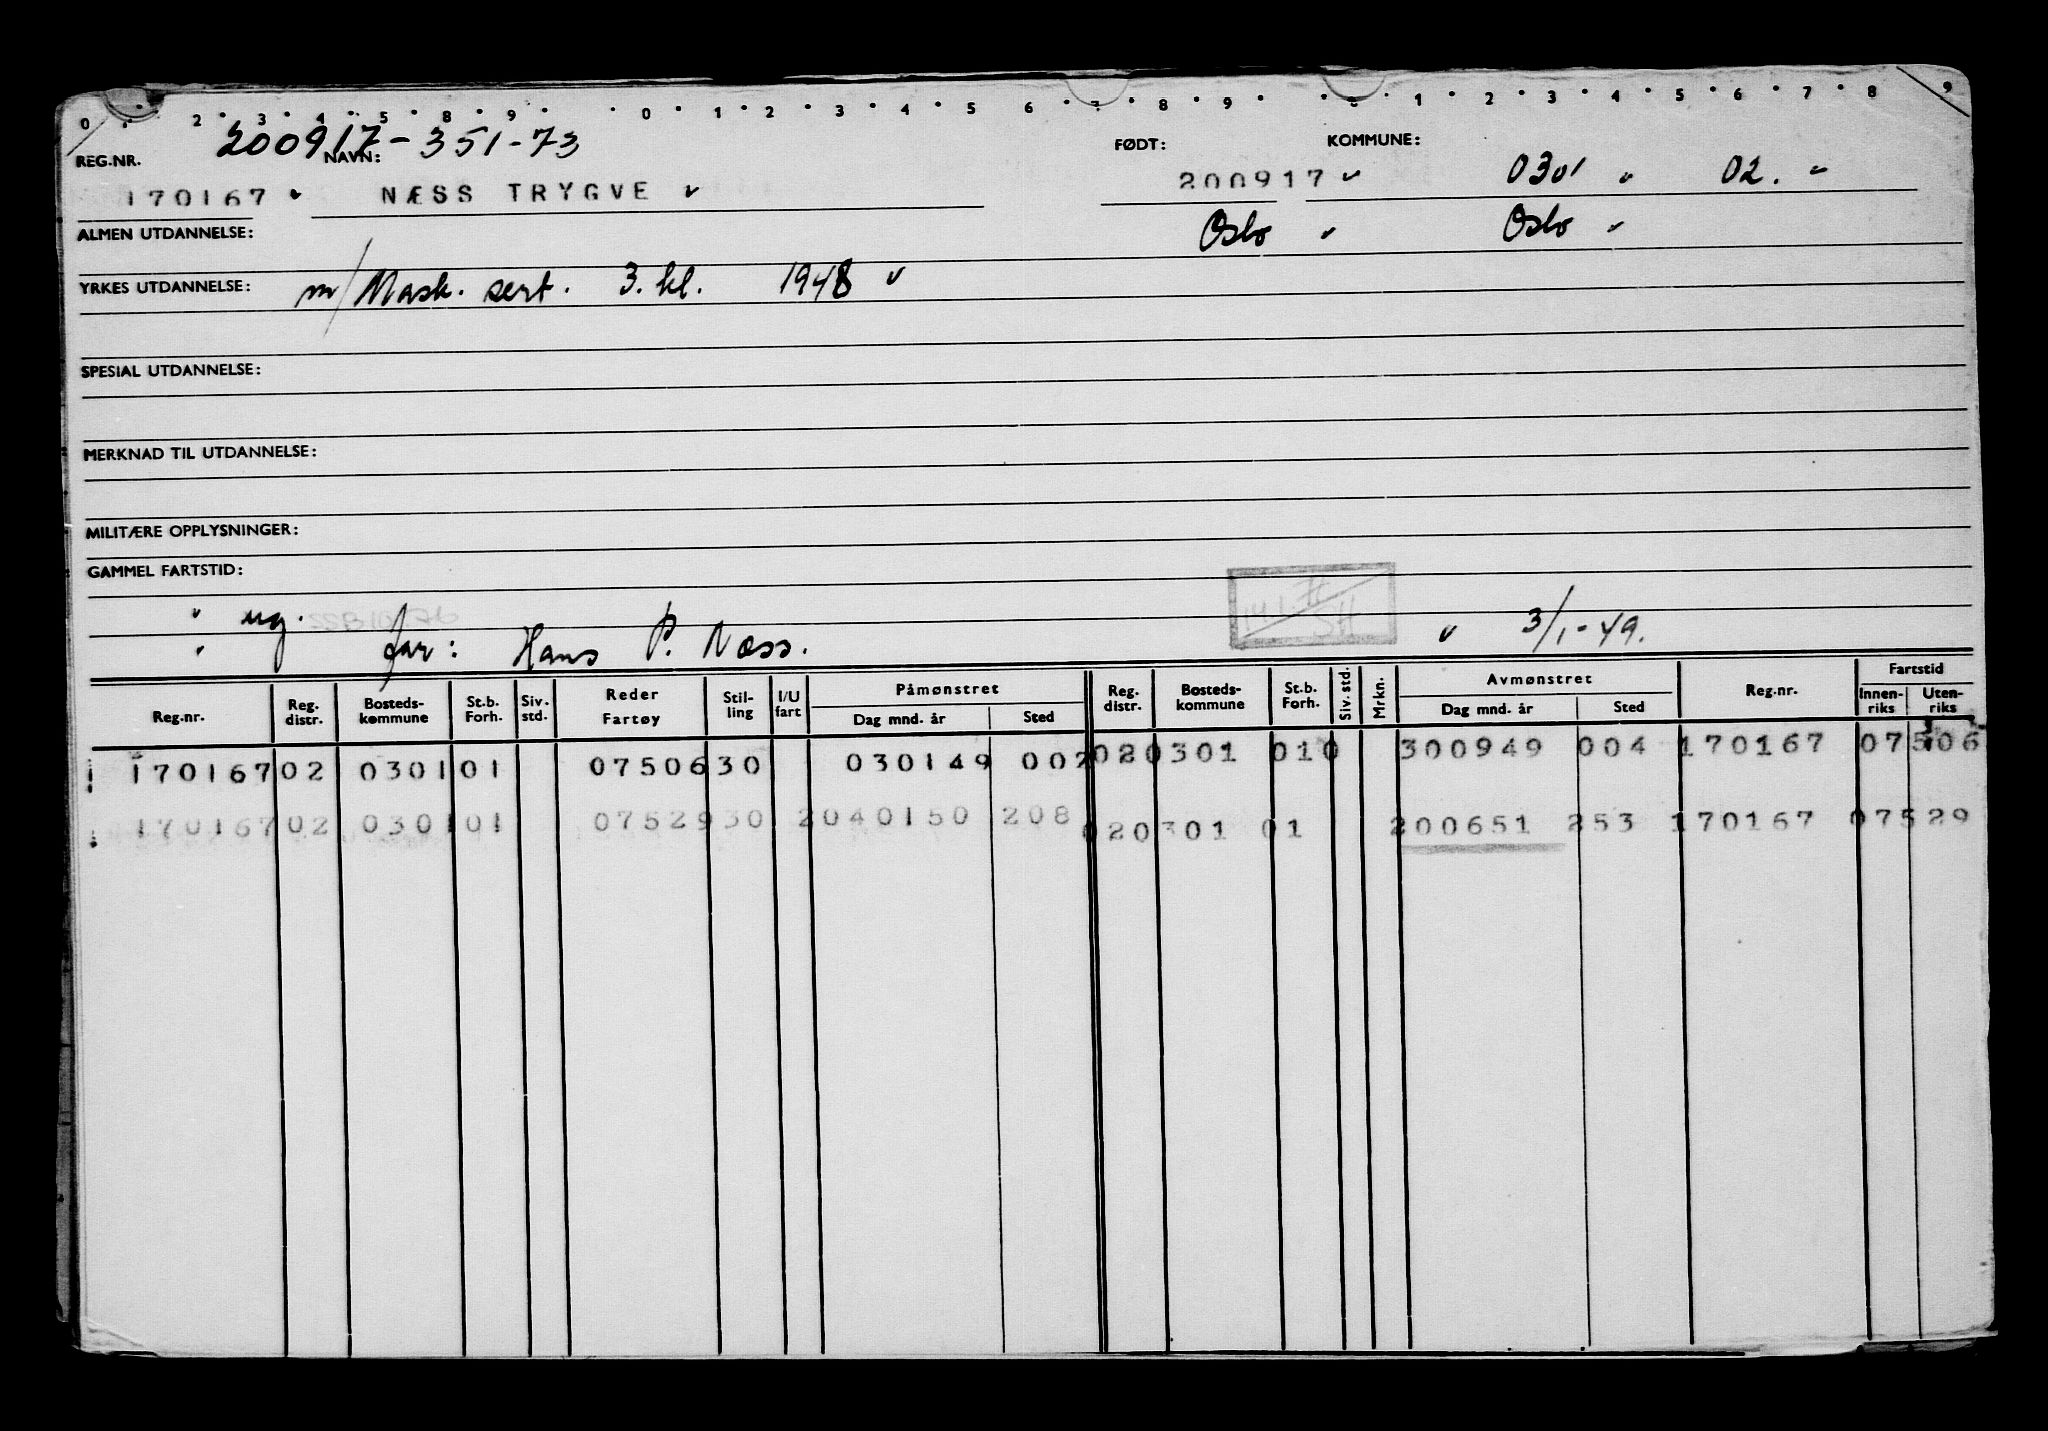 0 2 3 4 5 8 9 0 1 2 3 4 5 6 7 8 9 1 2 3 4 5 6 7 8 9
200917-351-73
REG.NR. NAVN: FØDT: KOMMUNE:
170167 NÆSS TRYGVE 200917 0301 02.
ALMEN UTDANNELSE: Oslo Oslo
YRKES UTDANNELSE: m/Mask. sert. 3. kl. 1948
SPESIAL UTDANNELSE:
MERKNAD TIL UTDANNELSE:
MILITÆRE OPPLYSNINGER:
GAMMEL FARTSTID:
ug. 3/1-49.
far: Hans P. Næss.
Reg.nr. Reg. distr. Bosteds-kommune St.b. Forh. Siv. std. Reder Fartøy Stil-ling I/U fart Påmønstret Dag mnd. år Sted Reg. distr. Bosteds-kommune St.b. Forh. Siv. std. Mrkn. Avmønstret Dag mnd. år Sted Reg.nr. Fartstid Innen-riks Uten-riks
170167 02 0301 01 07506 30 030149 002 02 0301 010 300949 004 170167 07506
170167 02 0301 01 07529 30 2 040150 208 02 0301 01 200651 253 170167 07529